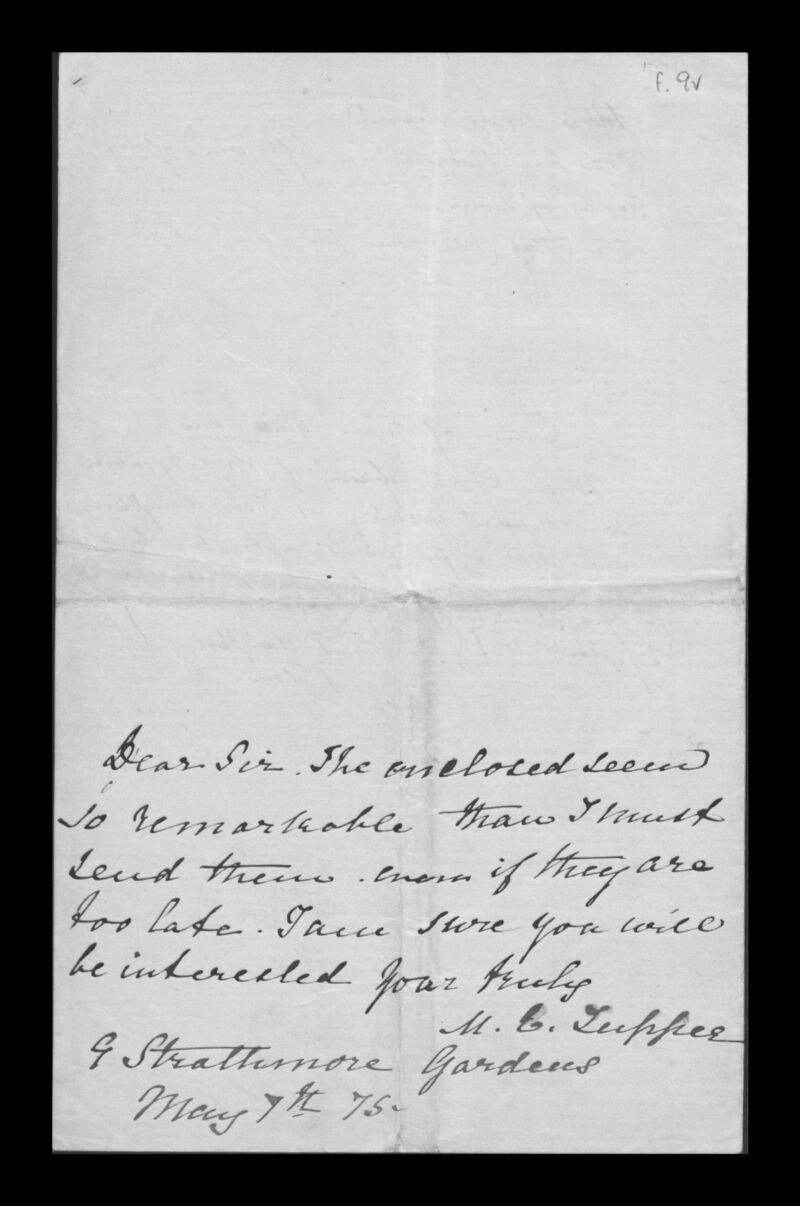 f. 9v
Dear Sir. The enclosed seem
so remarkable that I must
send them. even if they are
too late. I am sure you will
be interested Your truly
M. C. Tupper
9 Strathmore Gardens
May 7th 75-